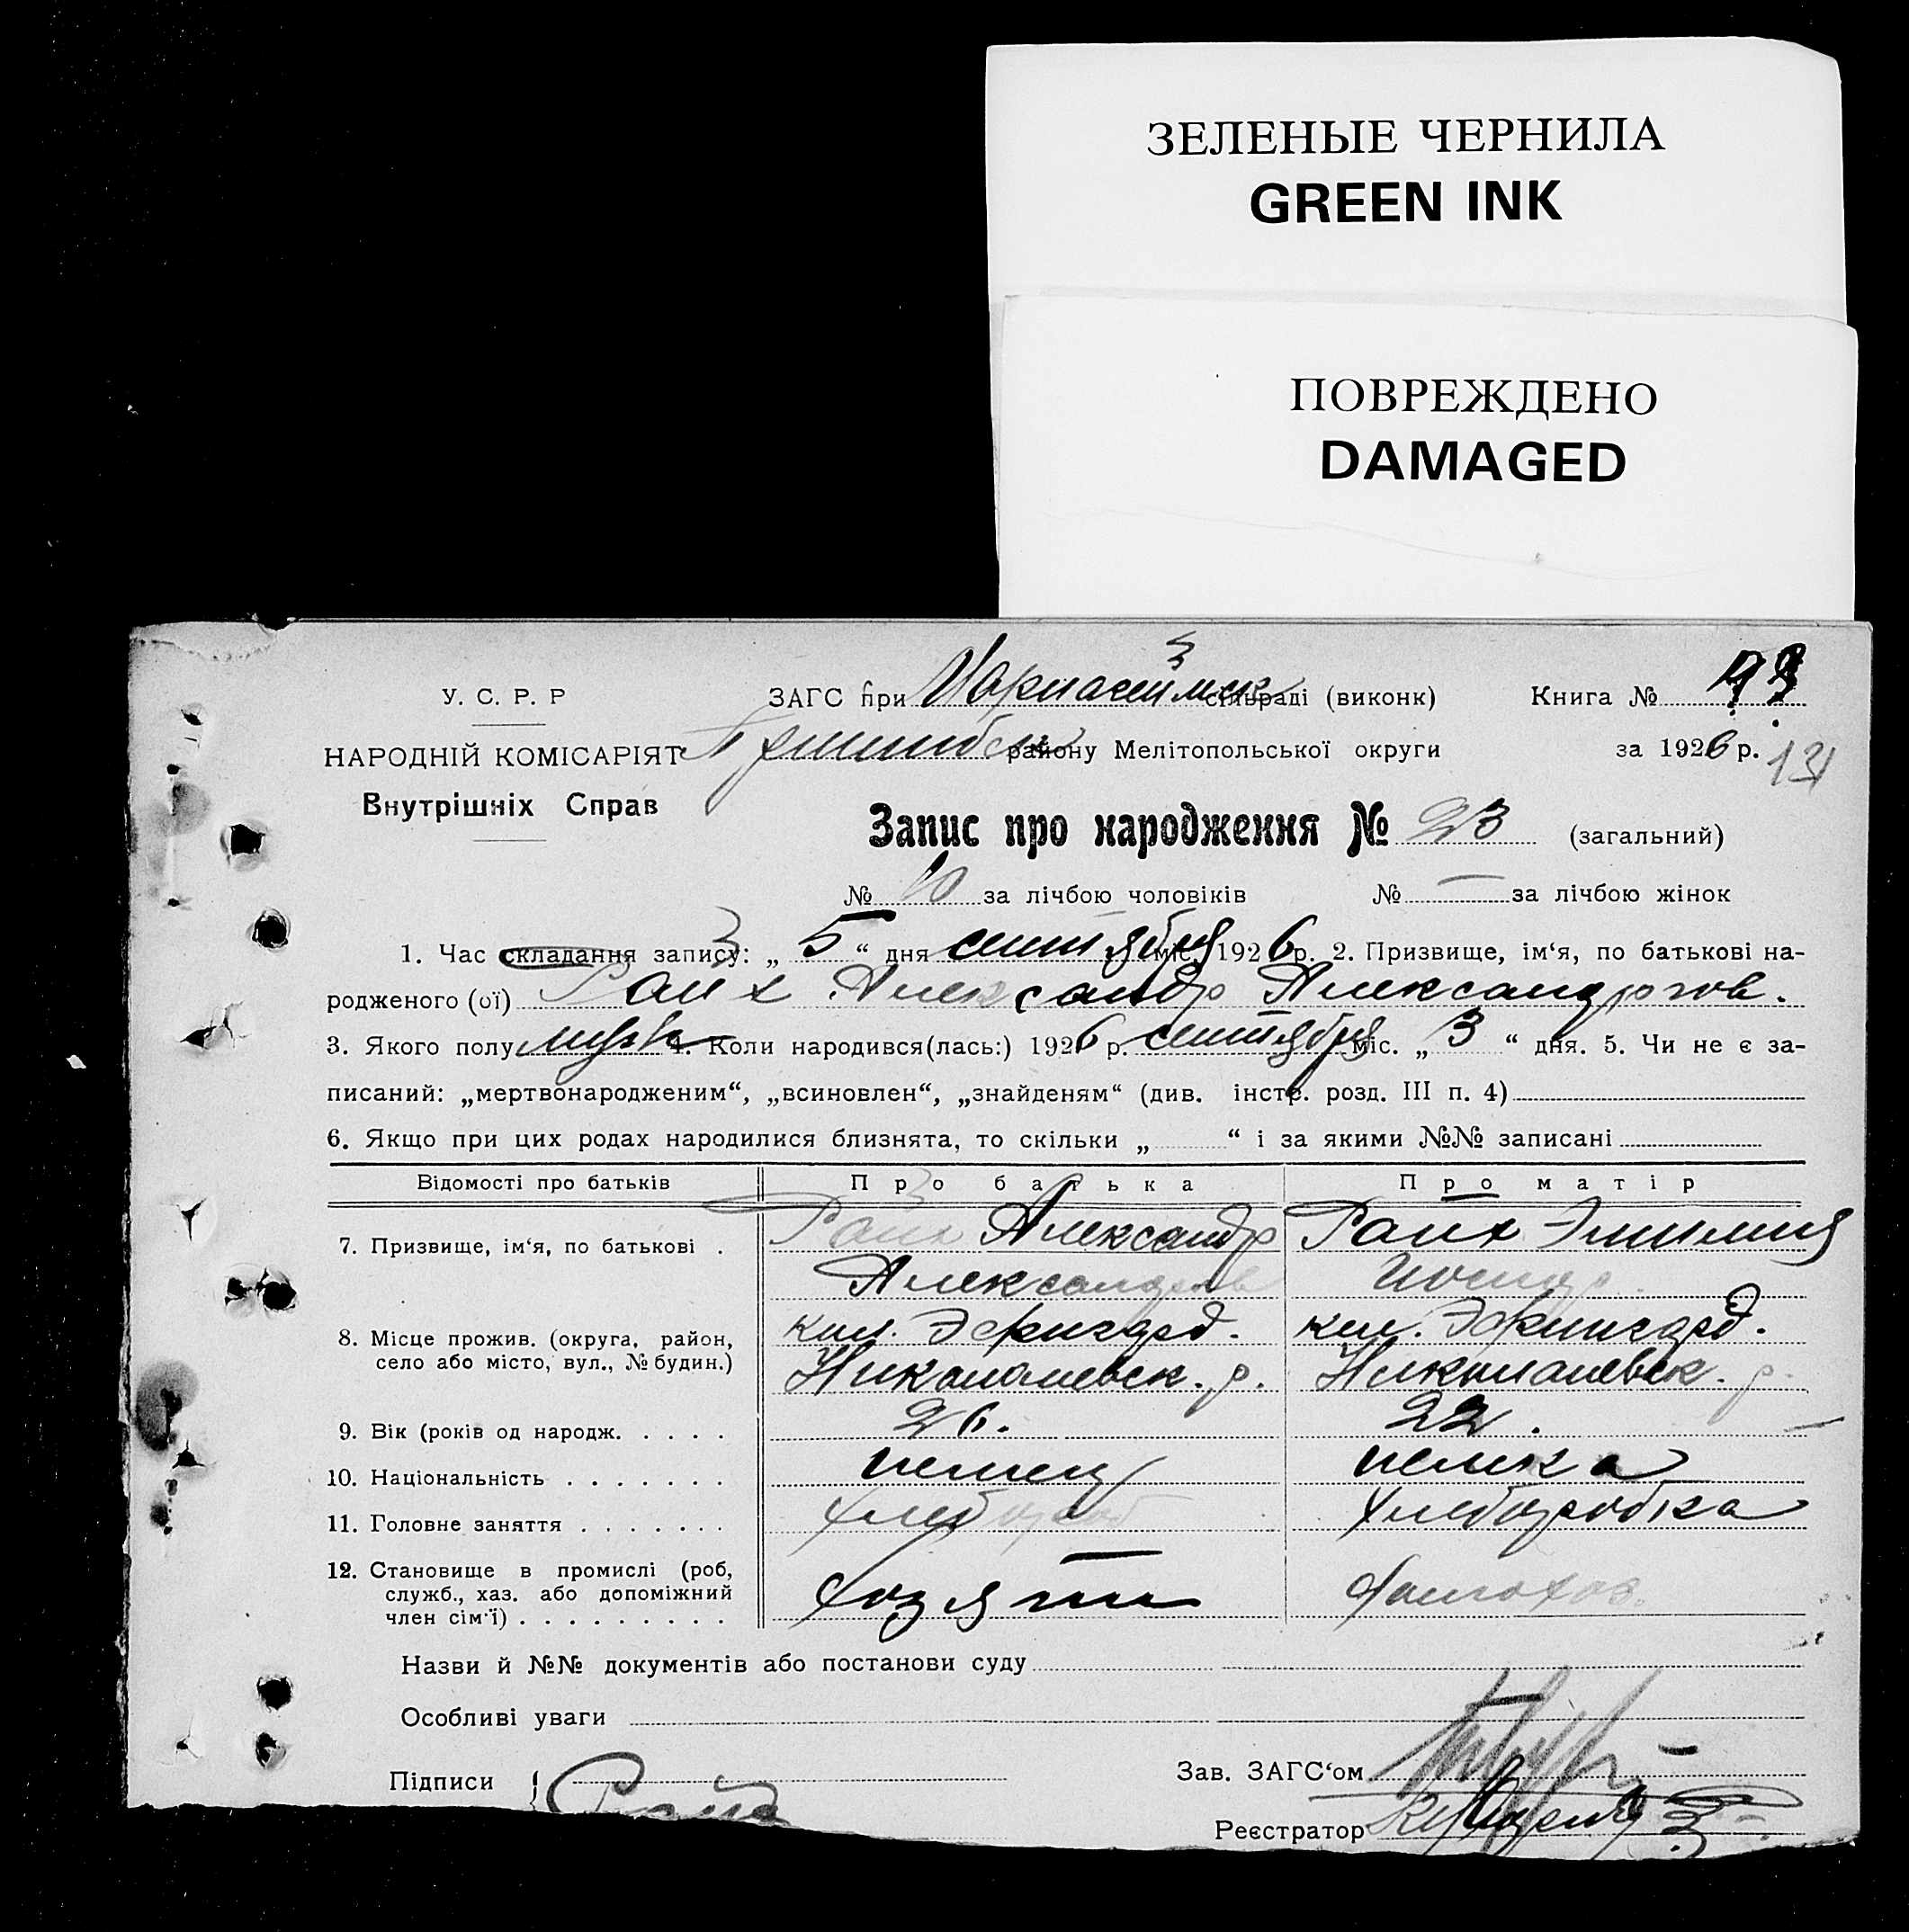 ЗЕЛЕНЫЕ ЧЕРНИЛА
GREEN INK
ПОВРЕЖДЕНО
DAMAGED
У. С. Р. Р ЗАГС при сільраді (виконк) Книга №
НАРОДНІЙ КОМІСАРІЯТ району Мелітопольської округи за 1926 р. 131
Внутрішніх Справ
Запис про народження № 23 (загальний)
№ 10 за лічбою чоловіків № — за лічбою жінок
1. Час складання запису: „ 5 “ дня сентября міс. 1926 р. 2. Призвище, ім‘я, по батькові на-
родженого (ої) Райх Александр Александров.
3. Якого полу муж 4. Коли народився(лась:) 1926 р. сентября міс. „ 3 “ дня. 5. Чи не є за-
писаний: „мертвонародженим“, „всиновлен“, „знайденям“ (див. інстр. розд. III п. 4)
6. Якщо при цих родах народилися близнята, то скільки „ “ і за якими №№ записані
Відомості про батьків Про батька Про матір
7. Призвище, ім‘я, по батькові . Райх Александр Райх Эмилия
Александров
8. Місце прожив. (округа, район, кол. Эфригард. кол. Эфригард.
село або місто, вул., № будин.) Николаевск. р. Николаевск. р.
9. Вік (років од народж. . . . . 26. 22.
10. Національність . . . . . . . немец немка
11. Головне заняття . . . . . . . хлебороб хлеборобка
12. Становище в промислі (роб,
служб., хаз. або допоміжний хозяин домохоз.
член сім‘ї) . . . . . . . . .
Назви й №№ документів або постанови суду
Особливі уваги
Підписи { Райх Зав. ЗАГС‘ом
Реєстратор